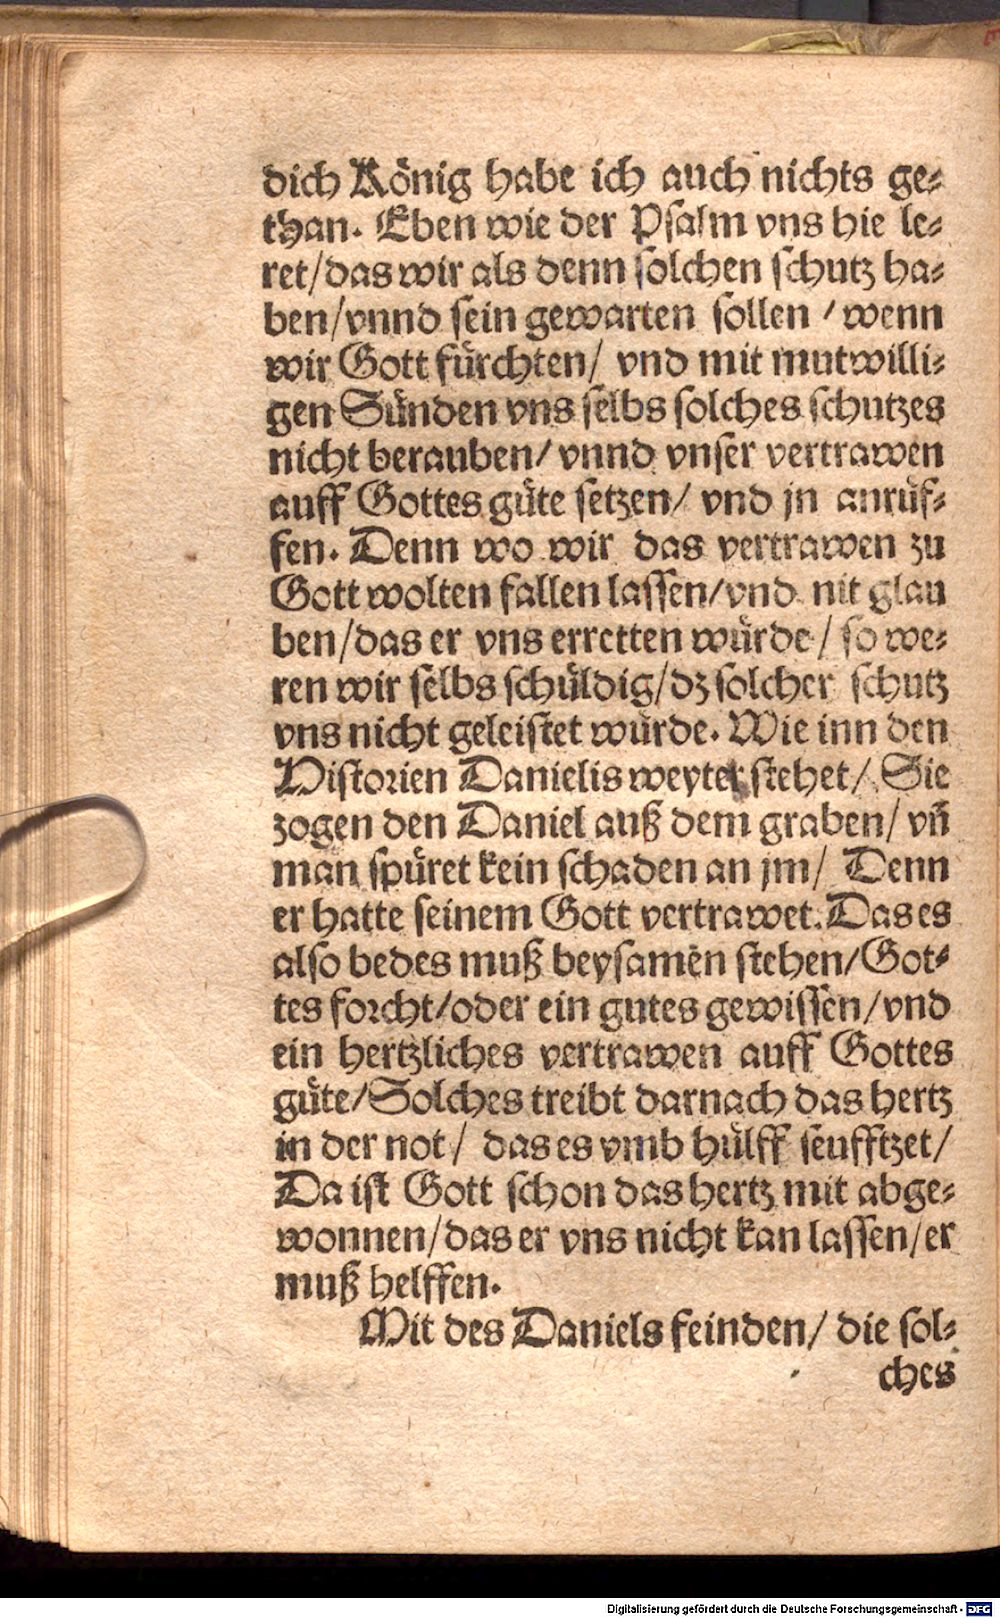 dich König habe ich auch nichts ge⸗
than. Eben wie der Psalm vns hie le⸗
ret/das wir als denn solchen schutz ha⸗
ben/vnnd sein gewarten sollen / wenn
wir Gott fürchten/ vnd mit mutwilli⸗
gen Sünden vns selbs solches schutzes
nicht berauben/ vnnd vnser vertrawen
auff Gottes güte setzen/ vnd jn anrüf⸗
fen. Denn wo wir das vertrawen zu
Gott wolten fallen lassen/vnd nit glau
ben/das er vns erretten würde/ so we⸗
ren wir selbs schüldig/dz solcher schutz
vns nicht geleistet würde. Wie inn den
Historien Danielis weyter stehet/ Sie
zogen den Daniel auß dem graben/ vñ
man spüret kein schaden an jm/ Denn
er hatte seinem Gott vertrawet. Das es
also bedes muß beysamen stehen/Got⸗
tes forcht/oder ein gutes gewissen/vnd
ein hertzliches vertrawen auff Gottes
güte/Solches treibt darnach das hertz
in der not/ das es vmb hülff seufftzet/
Da ist Gott schon das hertz mit abge⸗
wonnen/das er vns nicht kan lassen/er
muß helffen.
Mit des Daniels feinden/ die sol⸗
ches
Digitalisierung gefördert durch die Deutsche Forschungsgemeinschaft - DFG